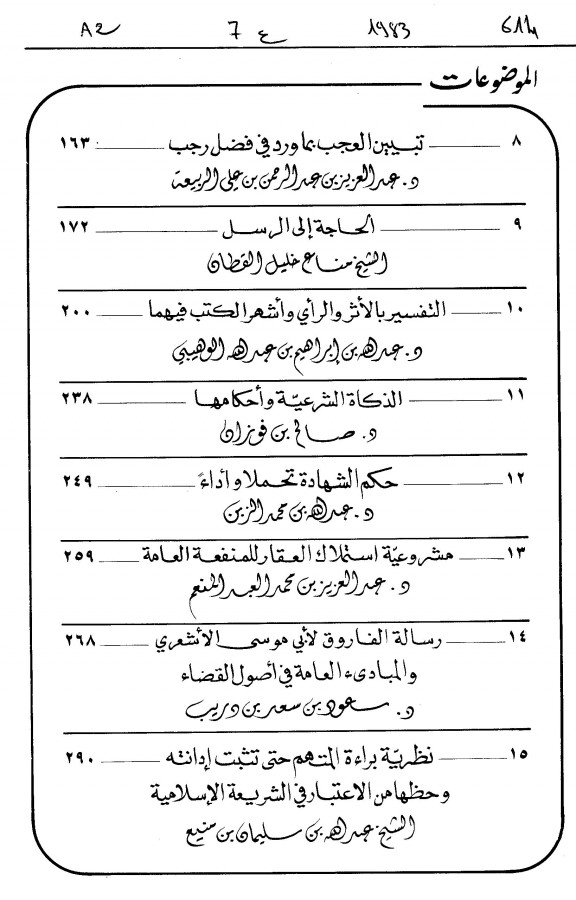 A2 7 ع 1983 614
الموضوعات
٨ تبيين العجب بما ورد في فضل رجب ١٦٣
د. عبدالعزيز بن عبدالرحمن بن علي الربيعة
٩ الحاجة إلى الرسل ١٧٢
الشيخ مناع خليل القطان
١٠ التفسير بالأثر والرأي وأشهر الكتب فيهما ٢٠٠
د. عبدالله بن إبراهيم بن عبدالله الوهيبي
١١ الذكاة الشرعيّة وأحكامها ٢٣٨
د. صالح بن فوزان
١٢ حكم الشهادة تحملا وأداءً ٢٤٩
د. عبدالله بن محمد الزبن
١٣ مشروعيّة استملاك العقار للمنفعة العامة ٢٥٩
د. عبدالعزيز بن محمد العبدالمنعم
١٤ رسالة الفاروق لأبي موسى الأشعري ٢٦٨
والمبادىء العامة في أصول القضاء
د. سعود بن سعد بن دريب
١٥ نظريّة براءة المتهم حتى تثبت إدانته ٢٩٠
وحظها من الاعتبار في الشريعة الإسلامية
الشيخ عبدالله بن سليمان بن منيع